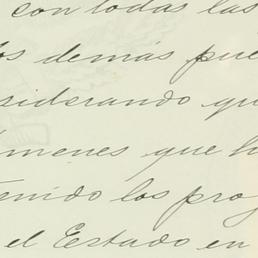 con todas las
os demás pue
siderando qu
ímenes que h
tenido los prog
el Estado en